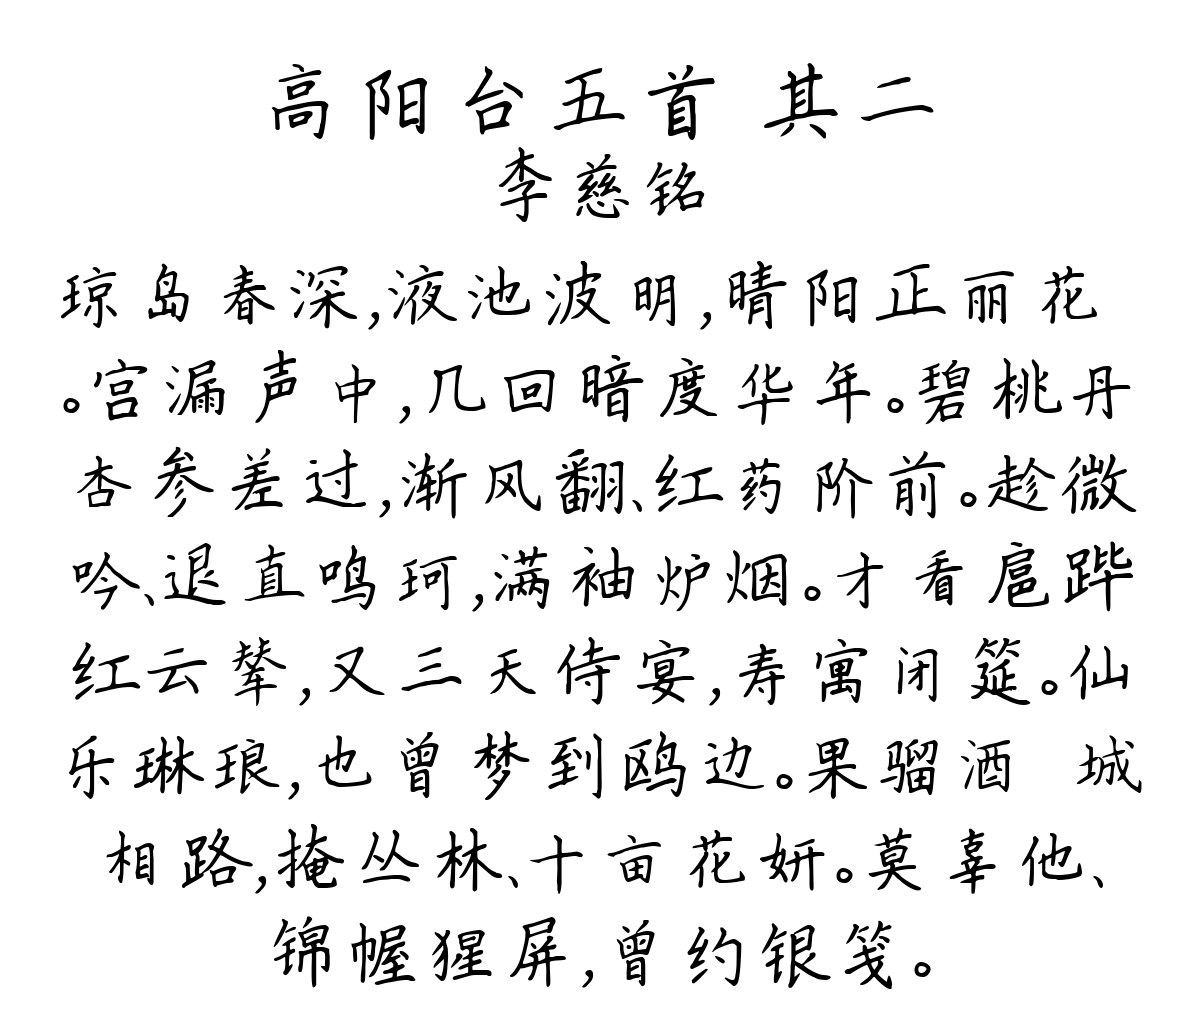 高阳台五首 其二
李慈铭
琼岛春深,液池波明,晴阳正丽花
。宫漏声中,几回暗度华年。碧桃丹
杏参差过,渐风翻、红药阶前。趁微
吟、退直鸣珂,满袖炉烟。才看扈跸
红云辇,又三天侍宴,寿寓闭筵。仙
乐琳琅,也曾梦到鸥边。果骝酒 城
相路,掩丛林、十亩花妍。莫辜他、
锦幄猩屏,曾约银笺。